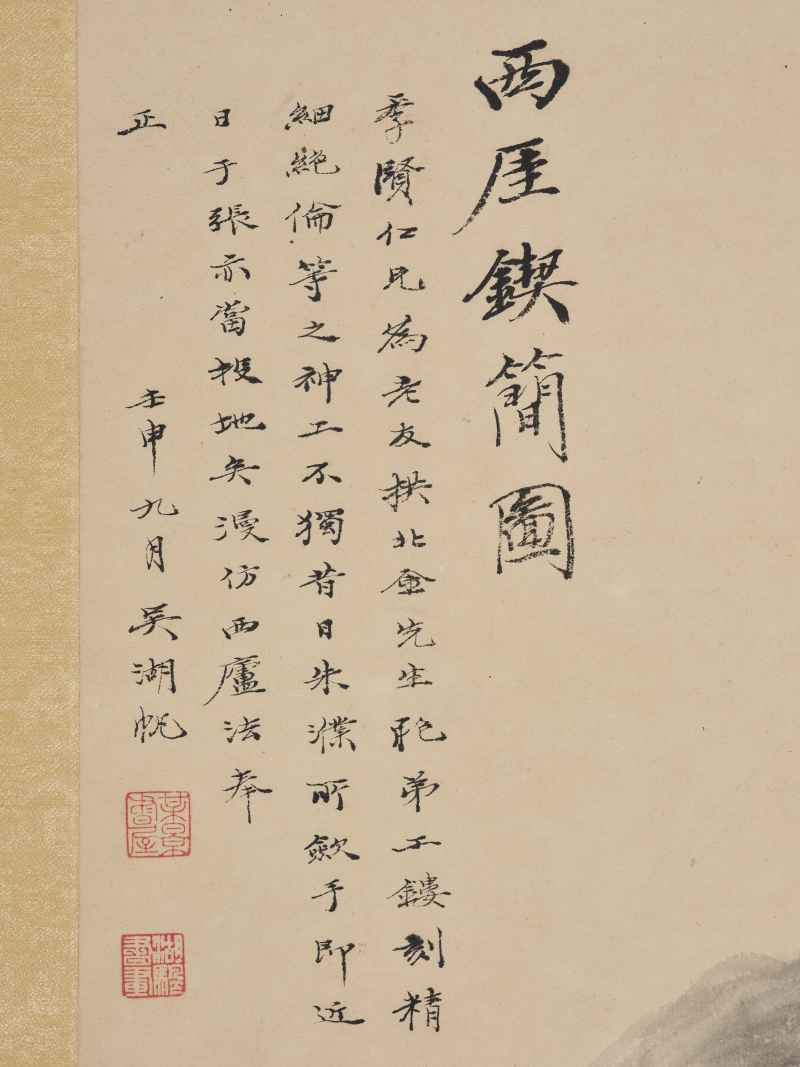 西厓鍥簡圖
季賢仁兄為老友拱北金先生胞弟工鏤刻精
細絕倫等之神工不獨昔日朱濮所歛手即近
日于張亦當投地矣漫仿西廬法奉
正
壬申九月吳湖帆
某景書屋
湖颿書畫